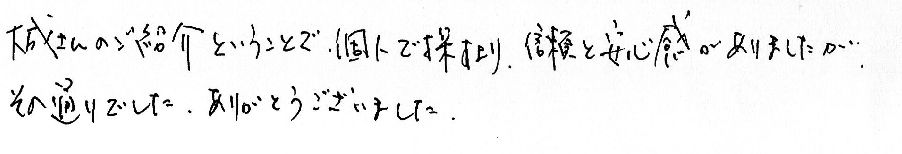 大成さんのご紹介ということで、個人で採り、信頼と安心感がありましたが、
その通りでした。ありがとうございました。